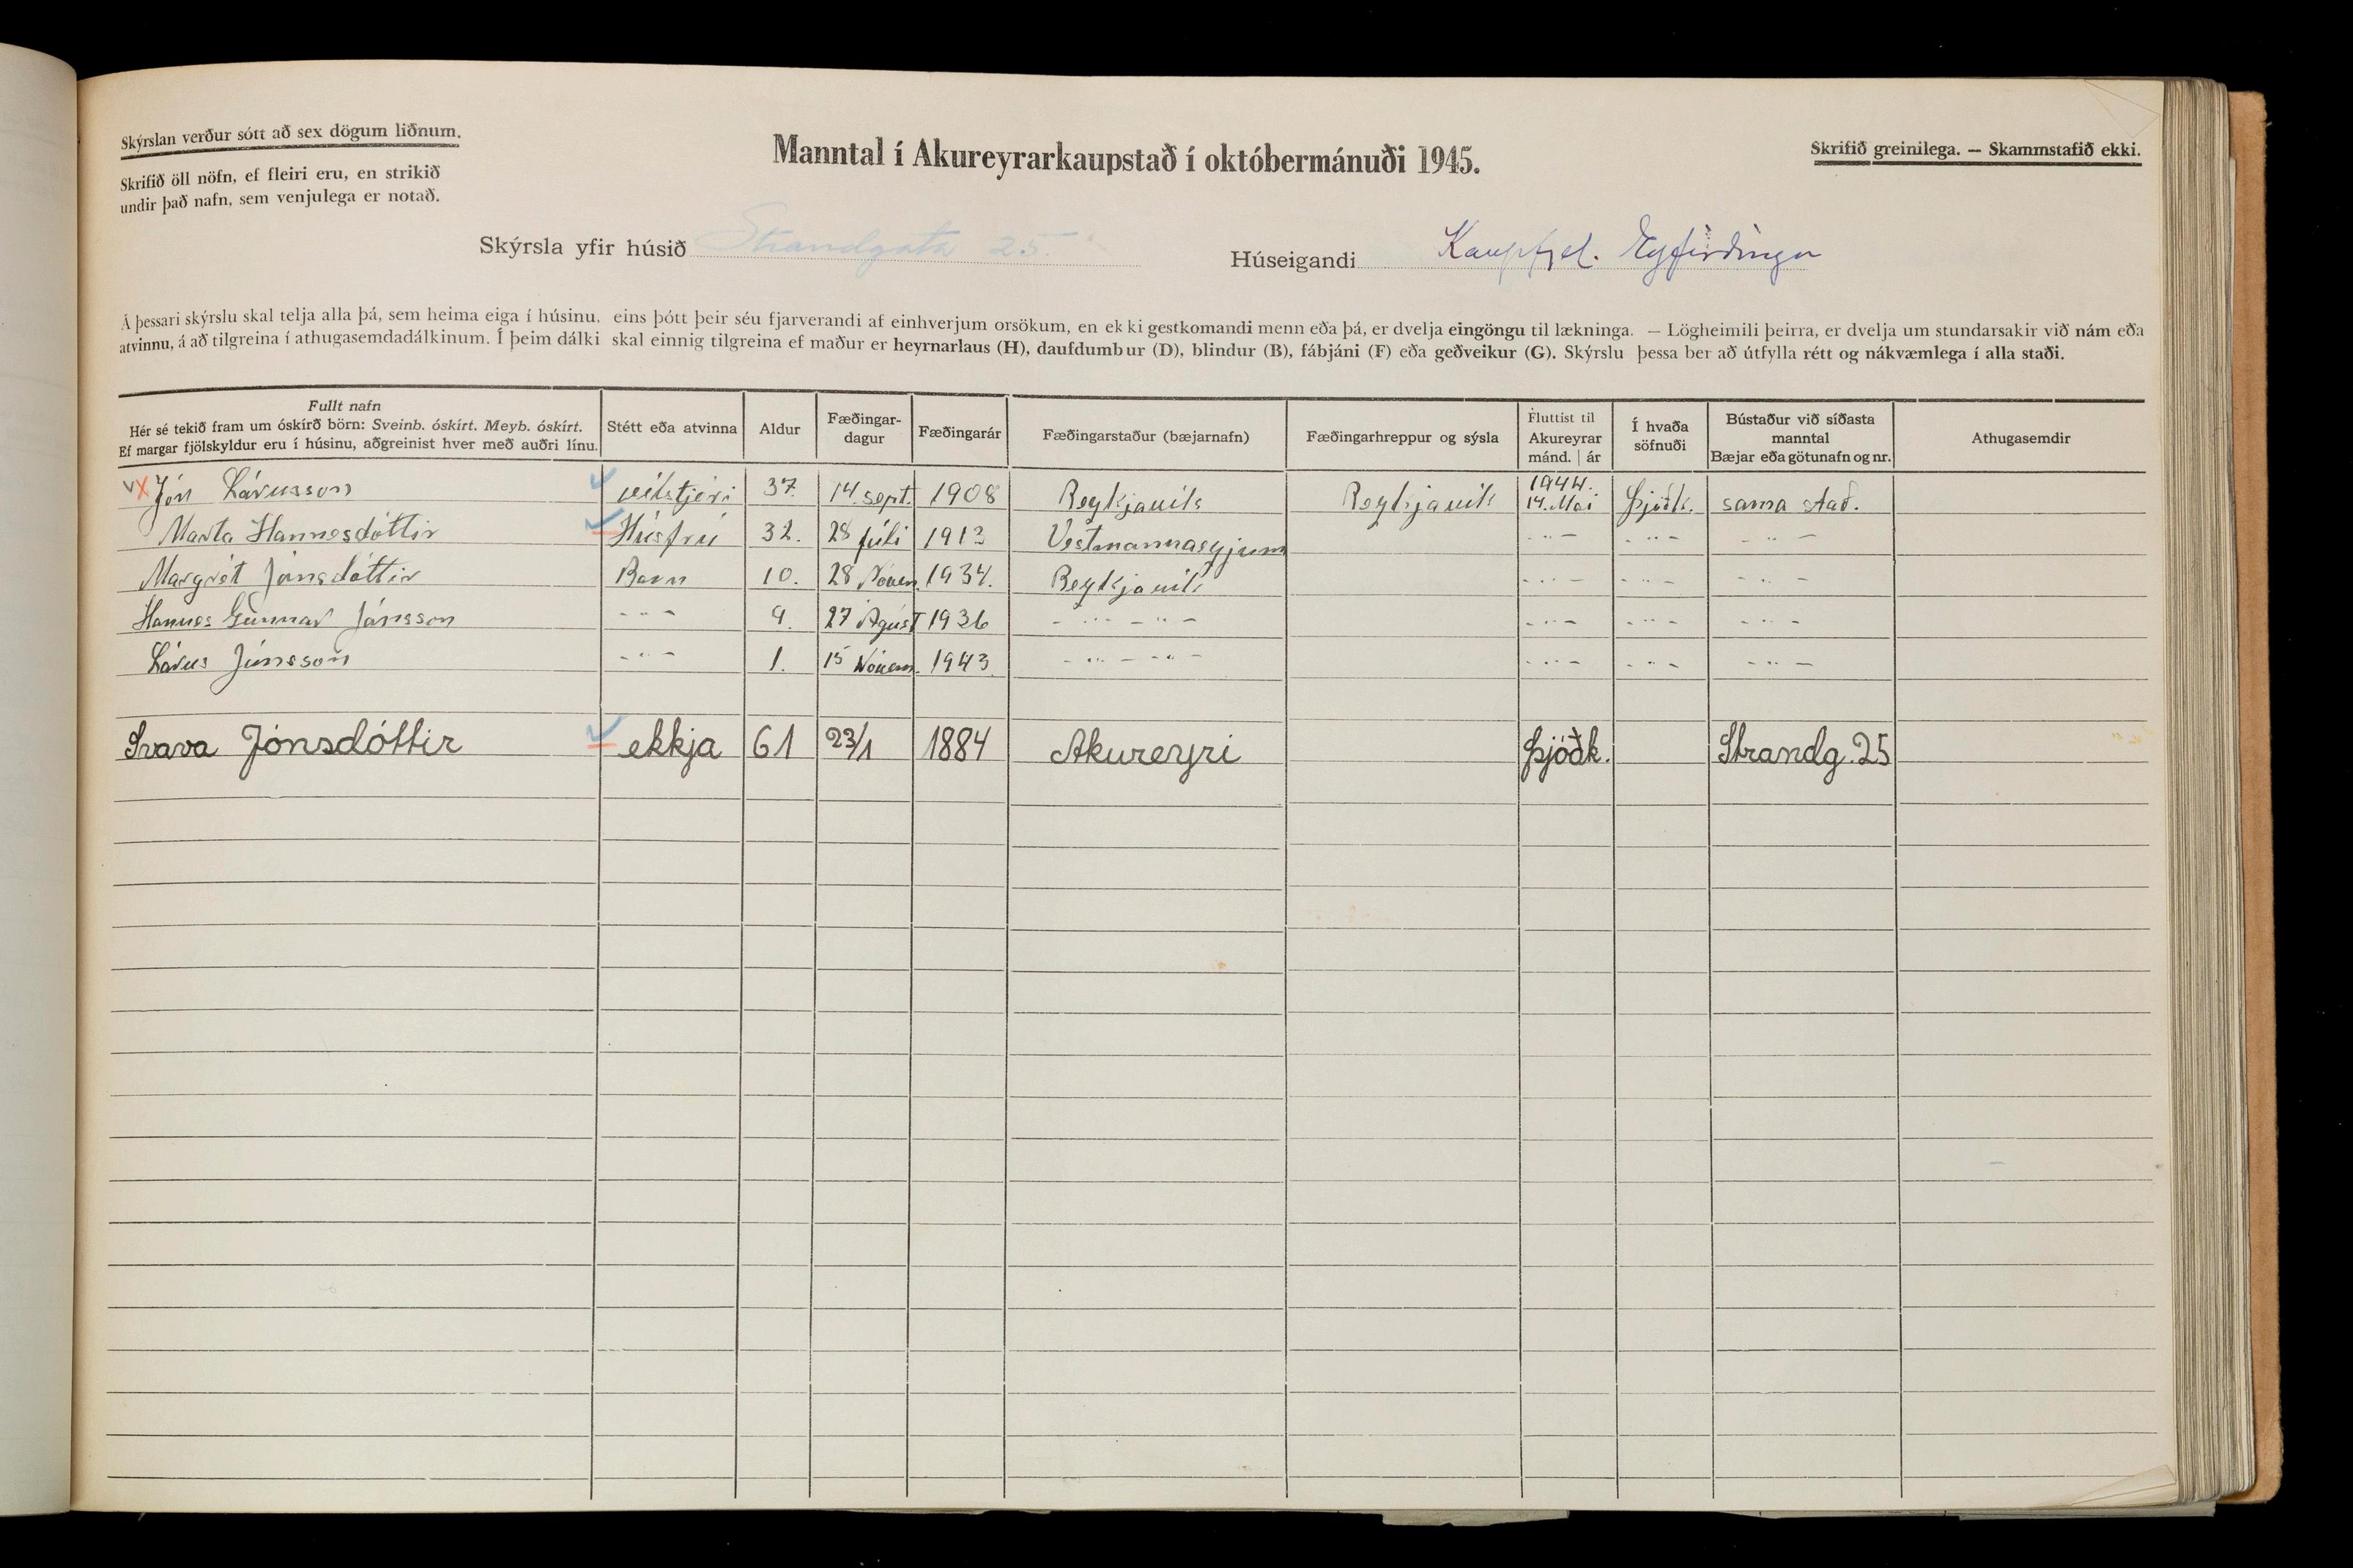 Skýrslan verður sótt að sex dögum liðnum.
Skrifið öll nöfn, ef fleiri eru, en strikið
undir það nafn, sem venjulega er notað.
Manntal í Akureyrarkaupstað í októbermánuði 1945.
Skrifið greinilega. — Skammstafið ekki.
Skýrsla yfir húsið Strandgata 25.
Húseigandi Kaupfjel. Eyfirðinga
Á þessari skýrslu skal telja alla þá, sem heima eiga í húsinu, eins þótt þeir séu fjarverandi af einhverjum orsökum, en ekki gestkomandi menn eða þá, er dvelja eingöngu til lækninga. — Lögheimili þeirra, er dvelja um stundarsakir við nám eða
atvinnu, á að tilgreina í athugasemdadálkinum. Í þeim dálki skal einnig tilgreina ef maður er heyrnarlaus (H), daufdumbur (D), blindur (B), fábjáni (F) eða geðveikur (G). Skýrslu þessa ber að útfylla rétt og nákvæmlega í alla staði.
Fullt nafn
Hér sé tekið fram um óskírð börn: Sveinb. óskírt. Meyb. óskírt.
Ef margar fjölskyldur eru í húsinu, aðgreinist hver með auðri línu.
Stétt eða atvinna
Aldur
Fæðingar-
dagur
Fæðingarár
Fæðingarstaður (bæjarnafn)
Fæðingarhreppur og sýsla
Fluttist til
Akureyrar
mánd. | ár
Í hvaða
söfnuði
Bústaður við síðasta
manntal
Bæjar eða götunafn og nr.
Athugasemdir
Jón Lárusson 37. 14. sept. 1908 Reykjavík Reykjavík 1944. 14. Maí Þjóðk. sama stað.
Marta Hannesdóttir Húsfrú 32. 28 júli 1913 Vestmannaeyjum - " - - " - - " -
Margrét Jónsdóttir Barn 10. 28 Nóvem. 1934. Reykjavík - " - - " - - " -
Hannes Gunnar Jónsson - " - 9. 27 Ágúst 1936 - " - - " - - " - - " - - " -
Lárus Jónsson - " - 1. 15 Nóvem. 1943. - " - - " - - " - - " - - " -
Svava Jónsdóttir ekkja 61 23/1 1884 Akureyri Þjóðk. Strandg. 25